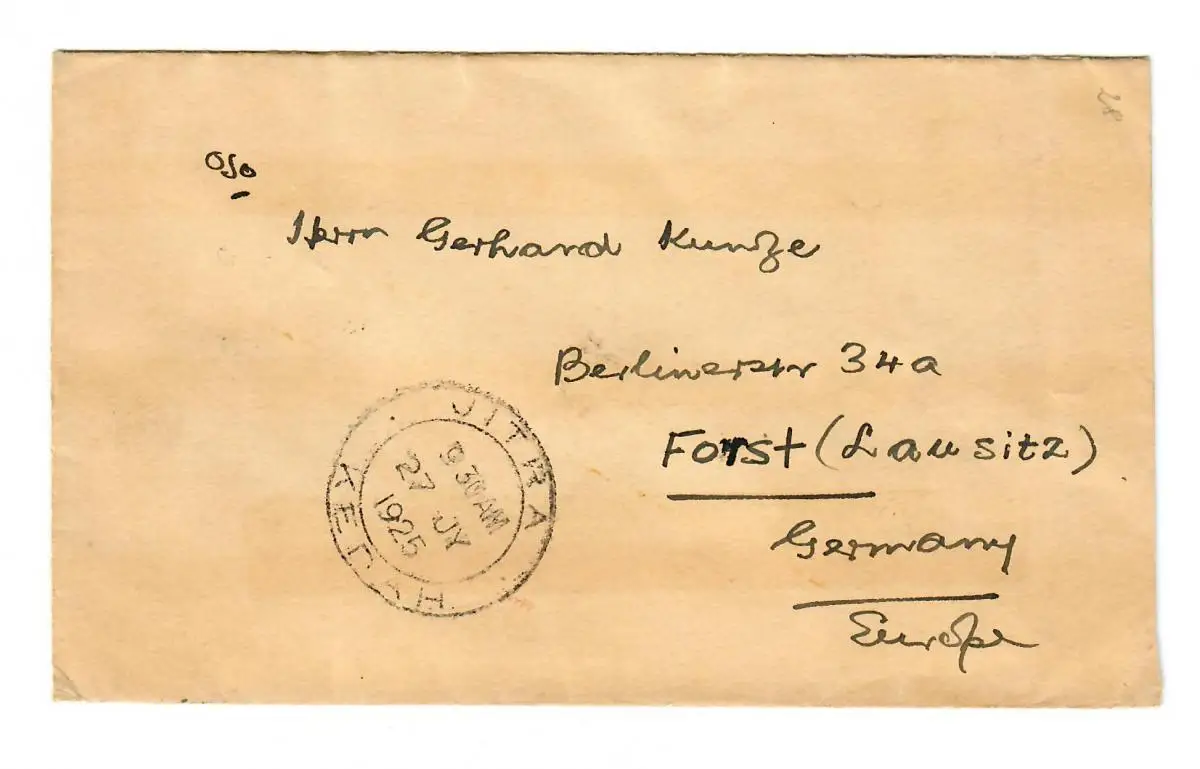 oso
Herrn Gerhard Kunze
Berlinerstr 34a
Forst (Lausitz)
Germany
Europe
JITRA
9 30 AM
27 JY
1925
KEDAH